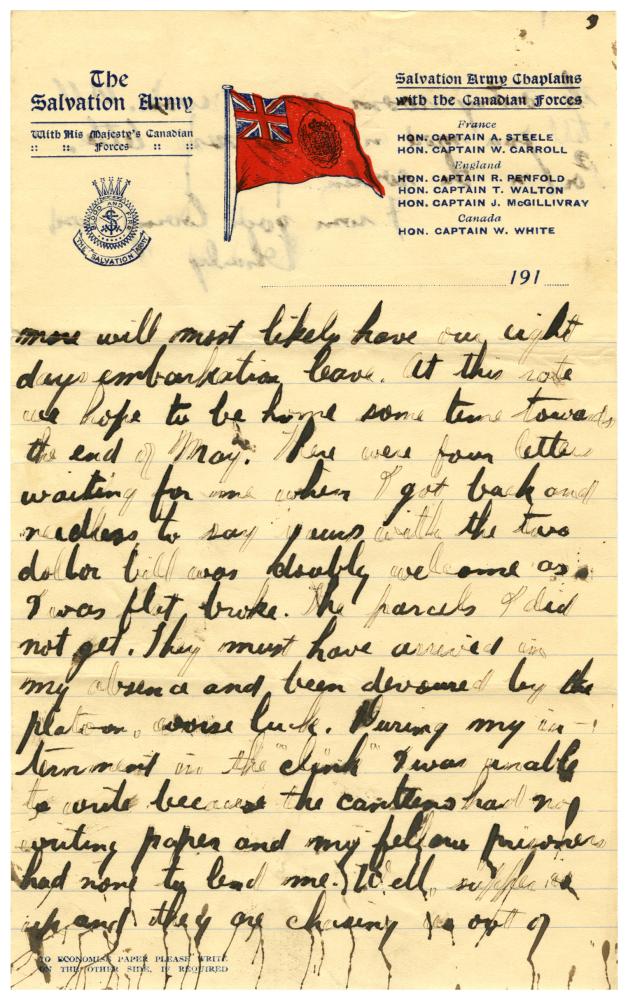 The
Salvation Army
With His Majesty's Canadian
:: :: Forces :: ::
BLOOD AND FIRE
THE SALVATION ARMY
Salvation Army Chaplains
with the Canadian Forces
France
HON. CAPTAIN A. STEELE
HON. CAPTAIN W. CARROLL
England
HON. CAPTAIN R. PENFOLD
HON. CAPTAIN T. WALTON
HON. CAPTAIN J. McGILLIVRAY
Canada
HON. CAPTAIN W. WHITE
191
more will most likely have our eight
days embarkation leave. At this rate
we hope to be home some time towards
the end of May. There were four letters
waiting for me when I got back and
needless to say yours with the two
dollar bill was doubly welcome as
I was flat broke. The parcels I did
not get. They must have arrived in
my absence and been devoured by the
platoon, worse luck. During my in-
ternment in the "clink" I was unable
to write because the canteens had no
writing paper and my fellow prisoners
had none to lend me. Well, supper is
up and they are chasing us out of
TO ECONOMISE PAPER PLEASE WRITE
ON THE OTHER SIDE, IF REQUIRED